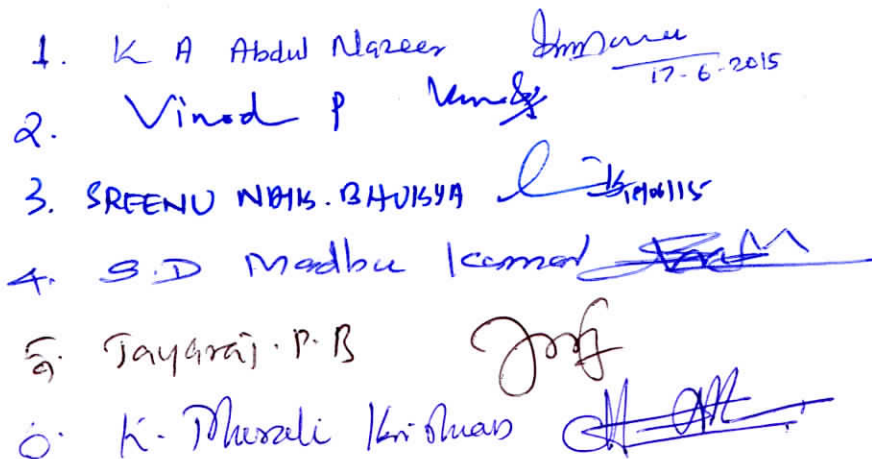 1. K A Abdul Nazeer 17-6-2015
2. Vinod P
3. SREENU NAIK. BHUKYA
4. S.D Madhu Kumar
5. Jayaraj. P. B
6. K. Murali Krishnan